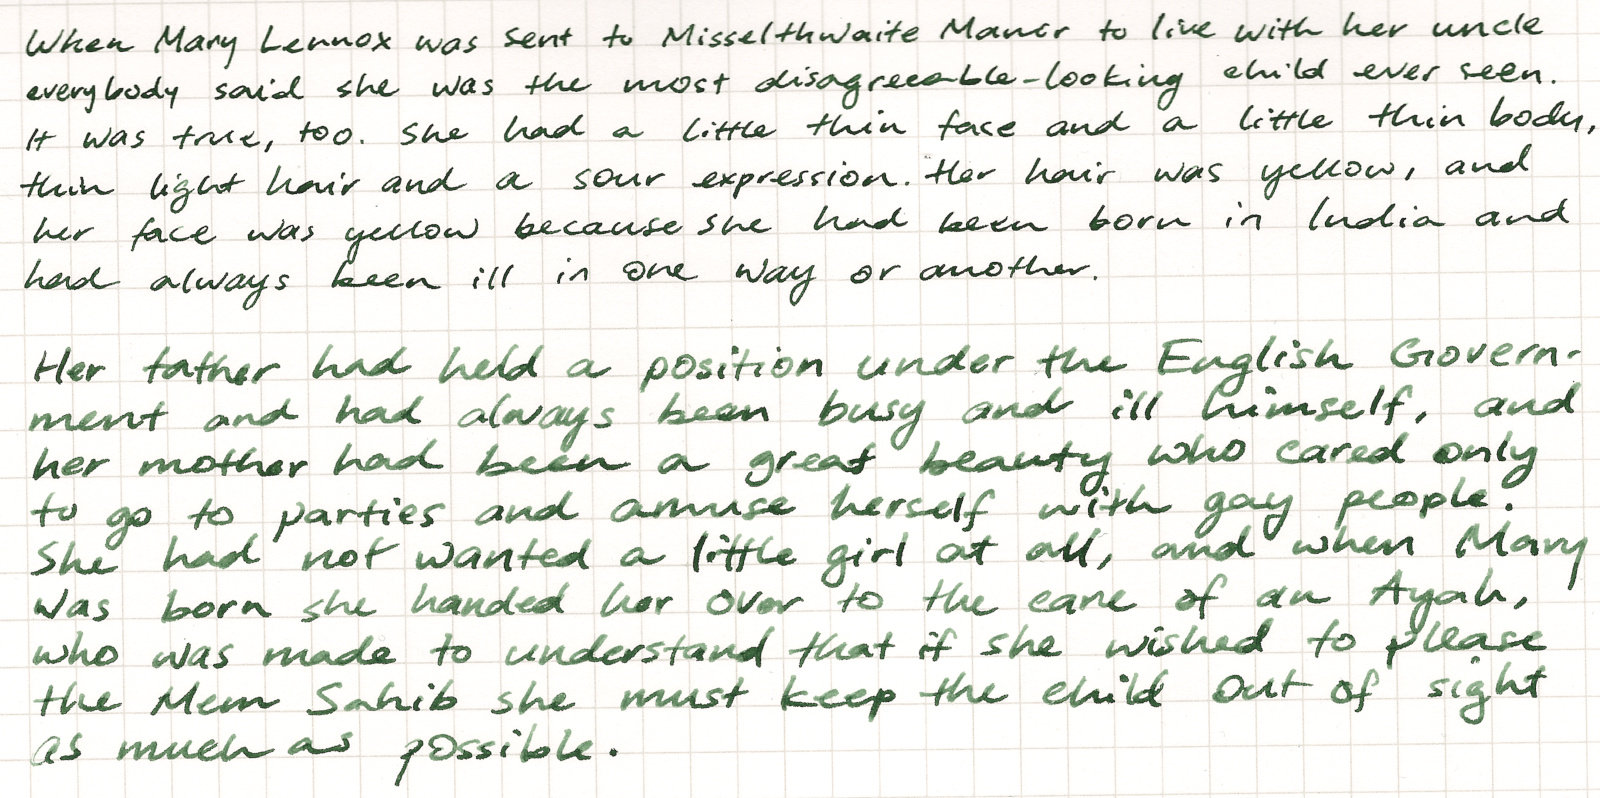 When Mary Lennox was sent to Misselthwaite Manor to live with her uncle
everybody said she was the most disagreeable-looking child ever seen.
It was true, too. She had a little thin face and a little thin body,
thin light hair and a sour expression. Her hair was yellow, and
her face was yellow because she had been born in India and
had always been ill in one way or another.
Her father had held a position under the English Govern-
ment and had always been busy and ill himself, and
her mother had been a great beauty who cared only
to go to parties and amuse herself with gay people.
She had not wanted a little girl at all, and when Mary
was born she handed her over to the care of an Ayah,
who was made to understand that if she wished to please
the Mem Sahib she must keep the child out of sight
as much as possible.